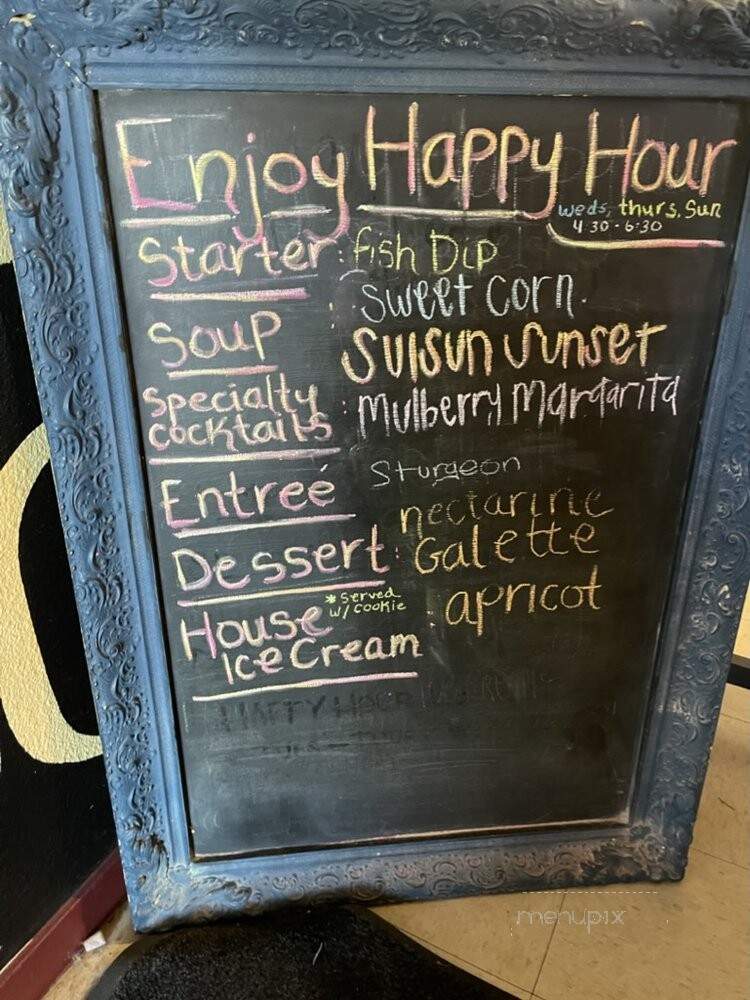 Enjoy Happy Hour
weds, thurs, Sun
4:30 - 6:30
Starter: fish Dip
Soup : Sweet Corn.
Suisun Sunset
Specialty
Cocktails : Mulberry Margarita
Entreé Sturgeon
nectarine
Dessert: Galette
*Served
w/ cookie
House
Ice Cream : apricot
HAPPY HOUR
menupix